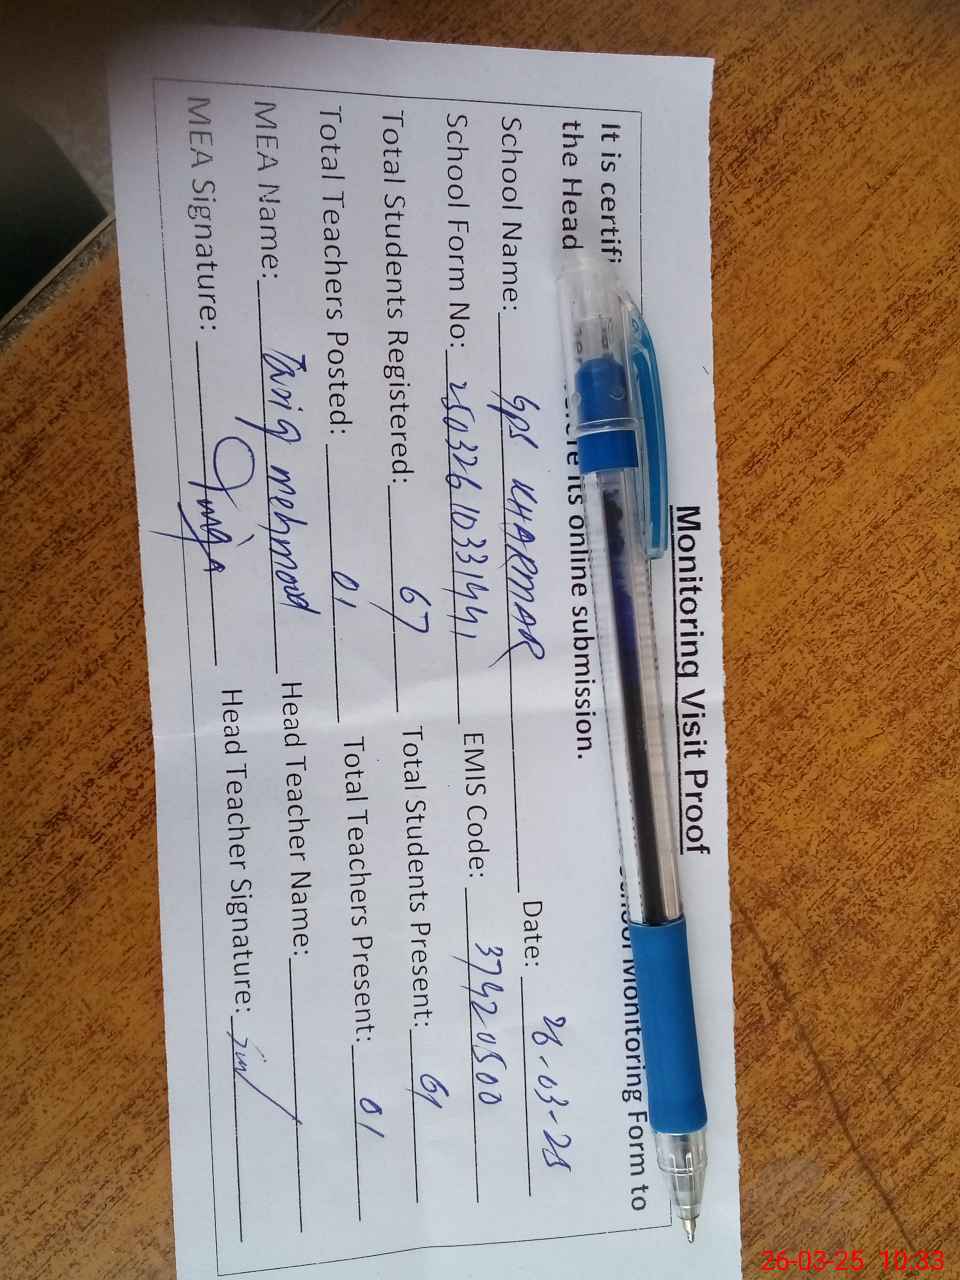 Monitoring Visit Proof
It is certifi School Monitoring Form to
the Head before its online submission.
School Name: GPS KHARMAR Date: 26-03-25
School Form No: 25032610331441 EMIS Code: 37420500
Total Students Registered: 67 Total Students Present: 61
Total Teachers Posted: 01 Total Teachers Present: 01
MEA Name: Tariq mehmood Head Teacher Name:
MEA Signature: Head Teacher Signature:
26-03-25 10:33